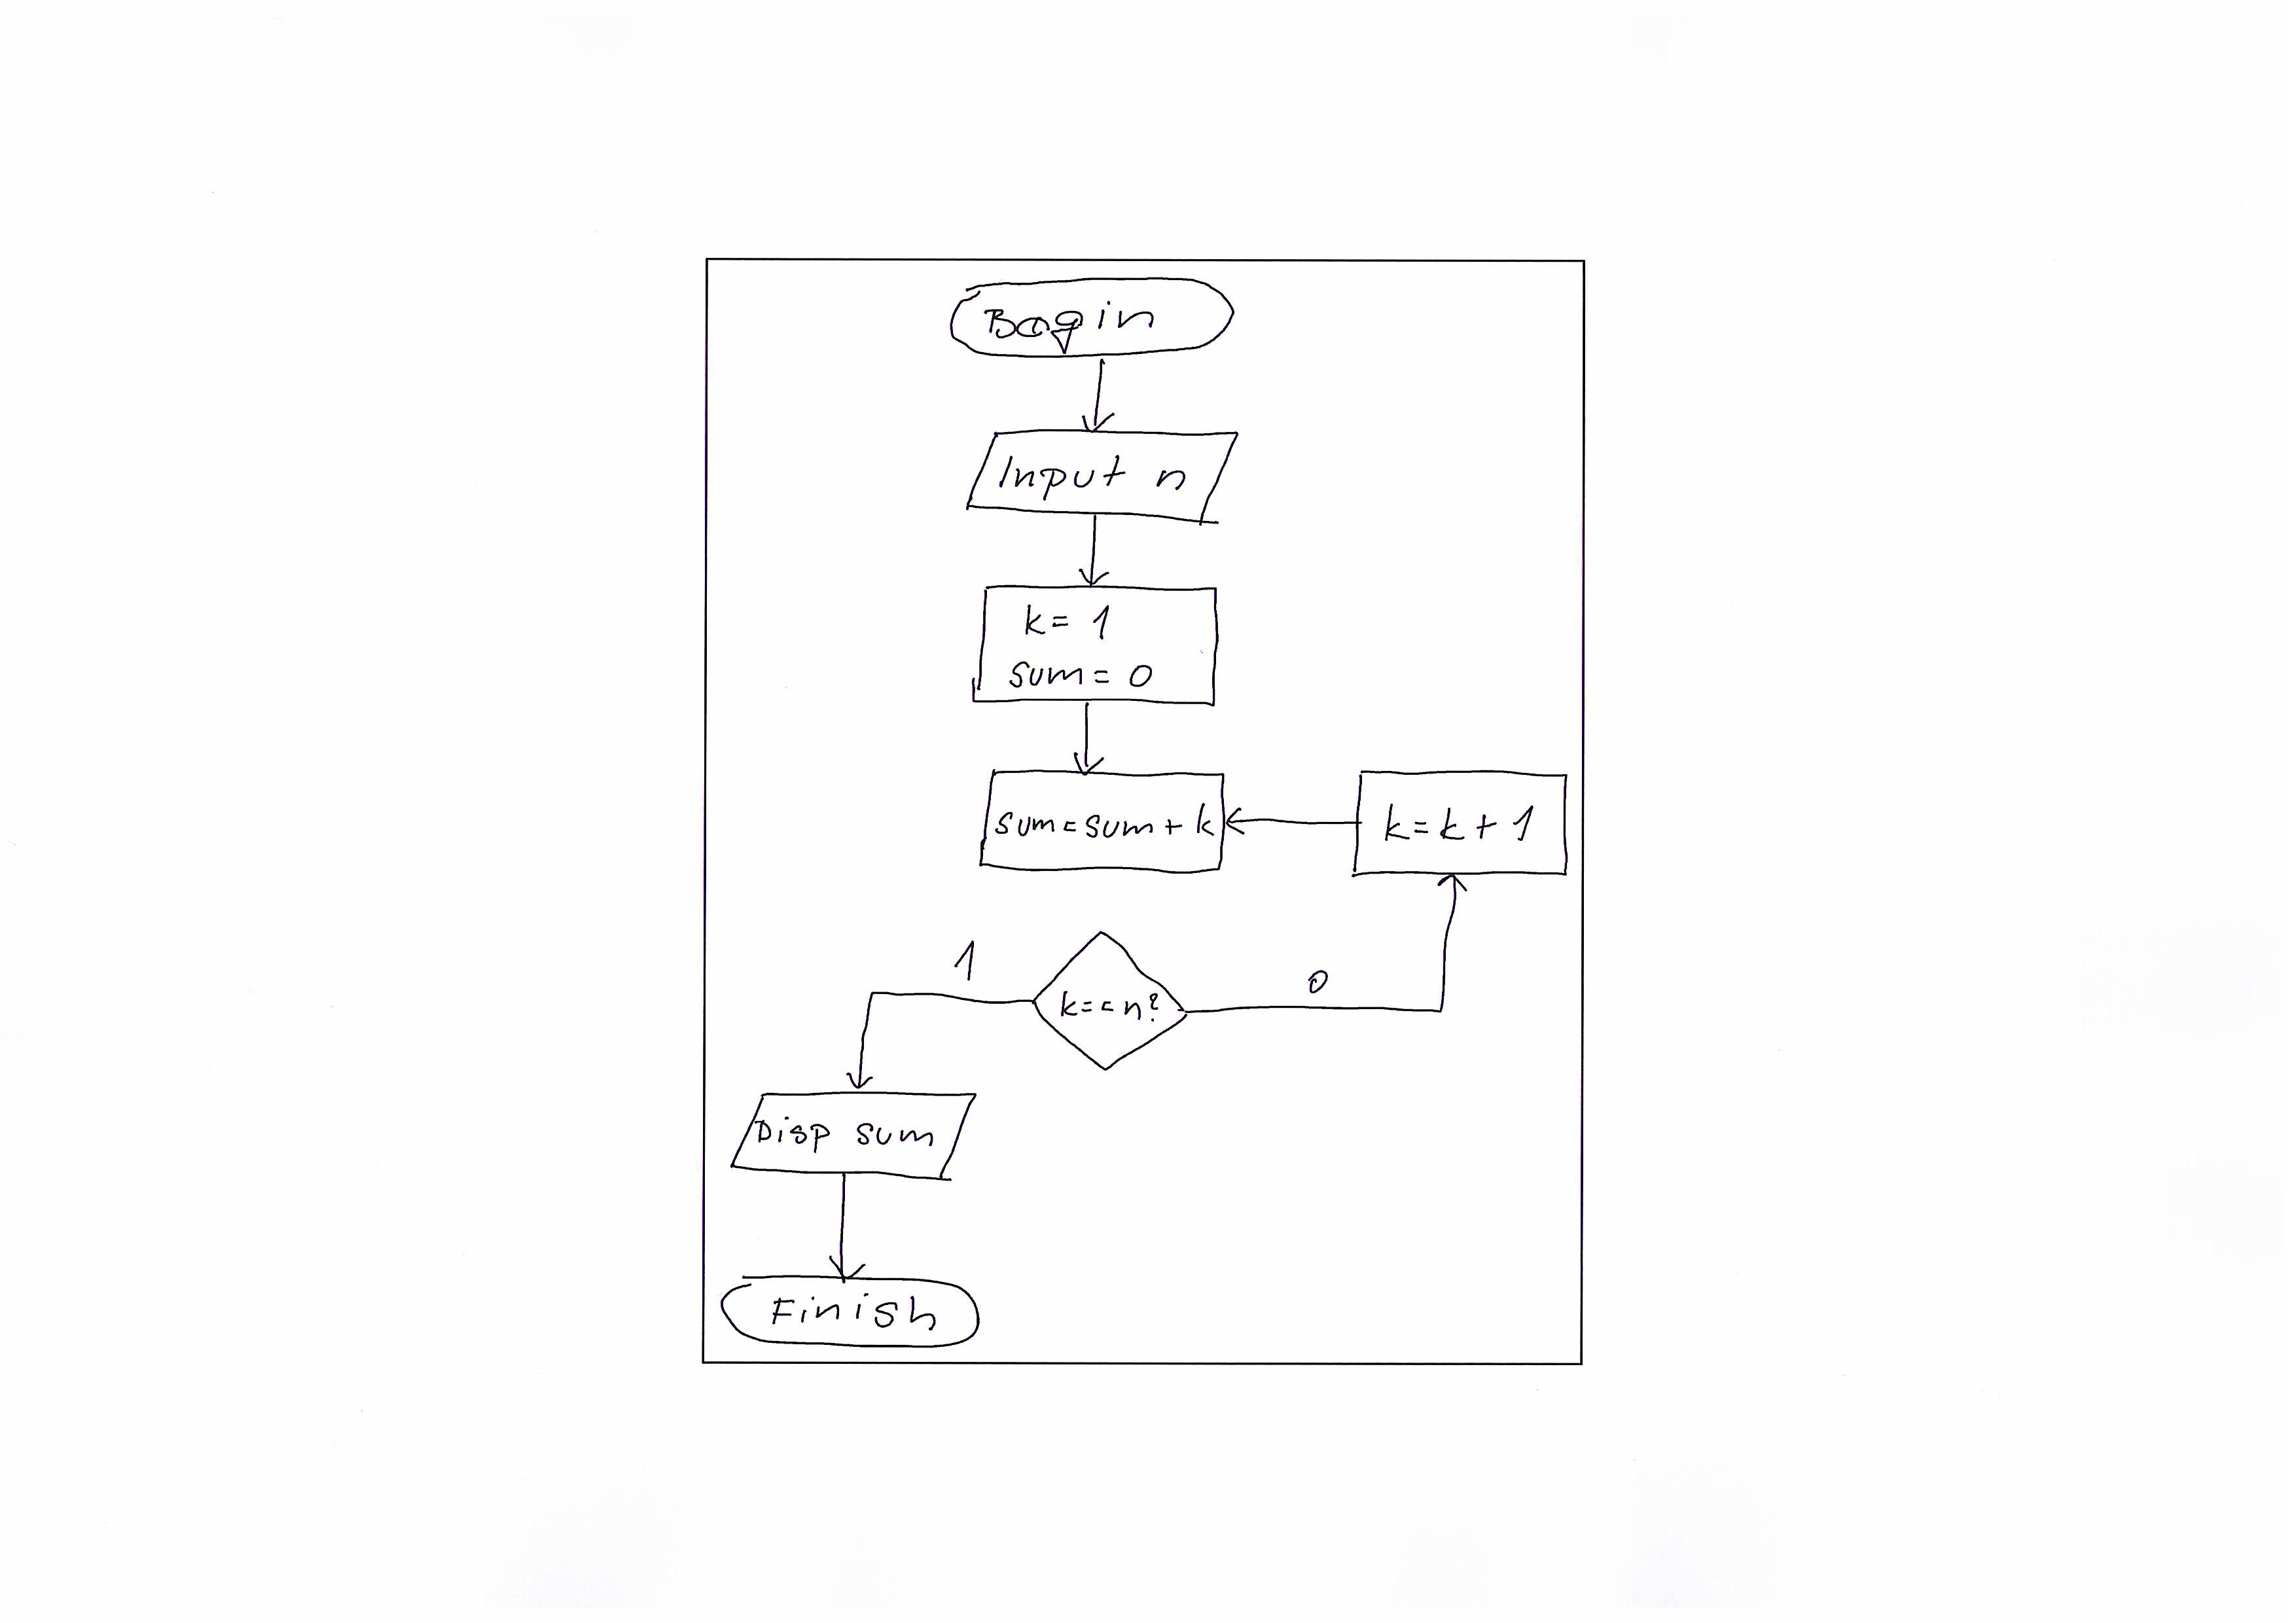 Begin
Input n
k= 1
sum= 0
sum=sum+k
k=k+1
1
0
k==n?
Disp sum
Finish